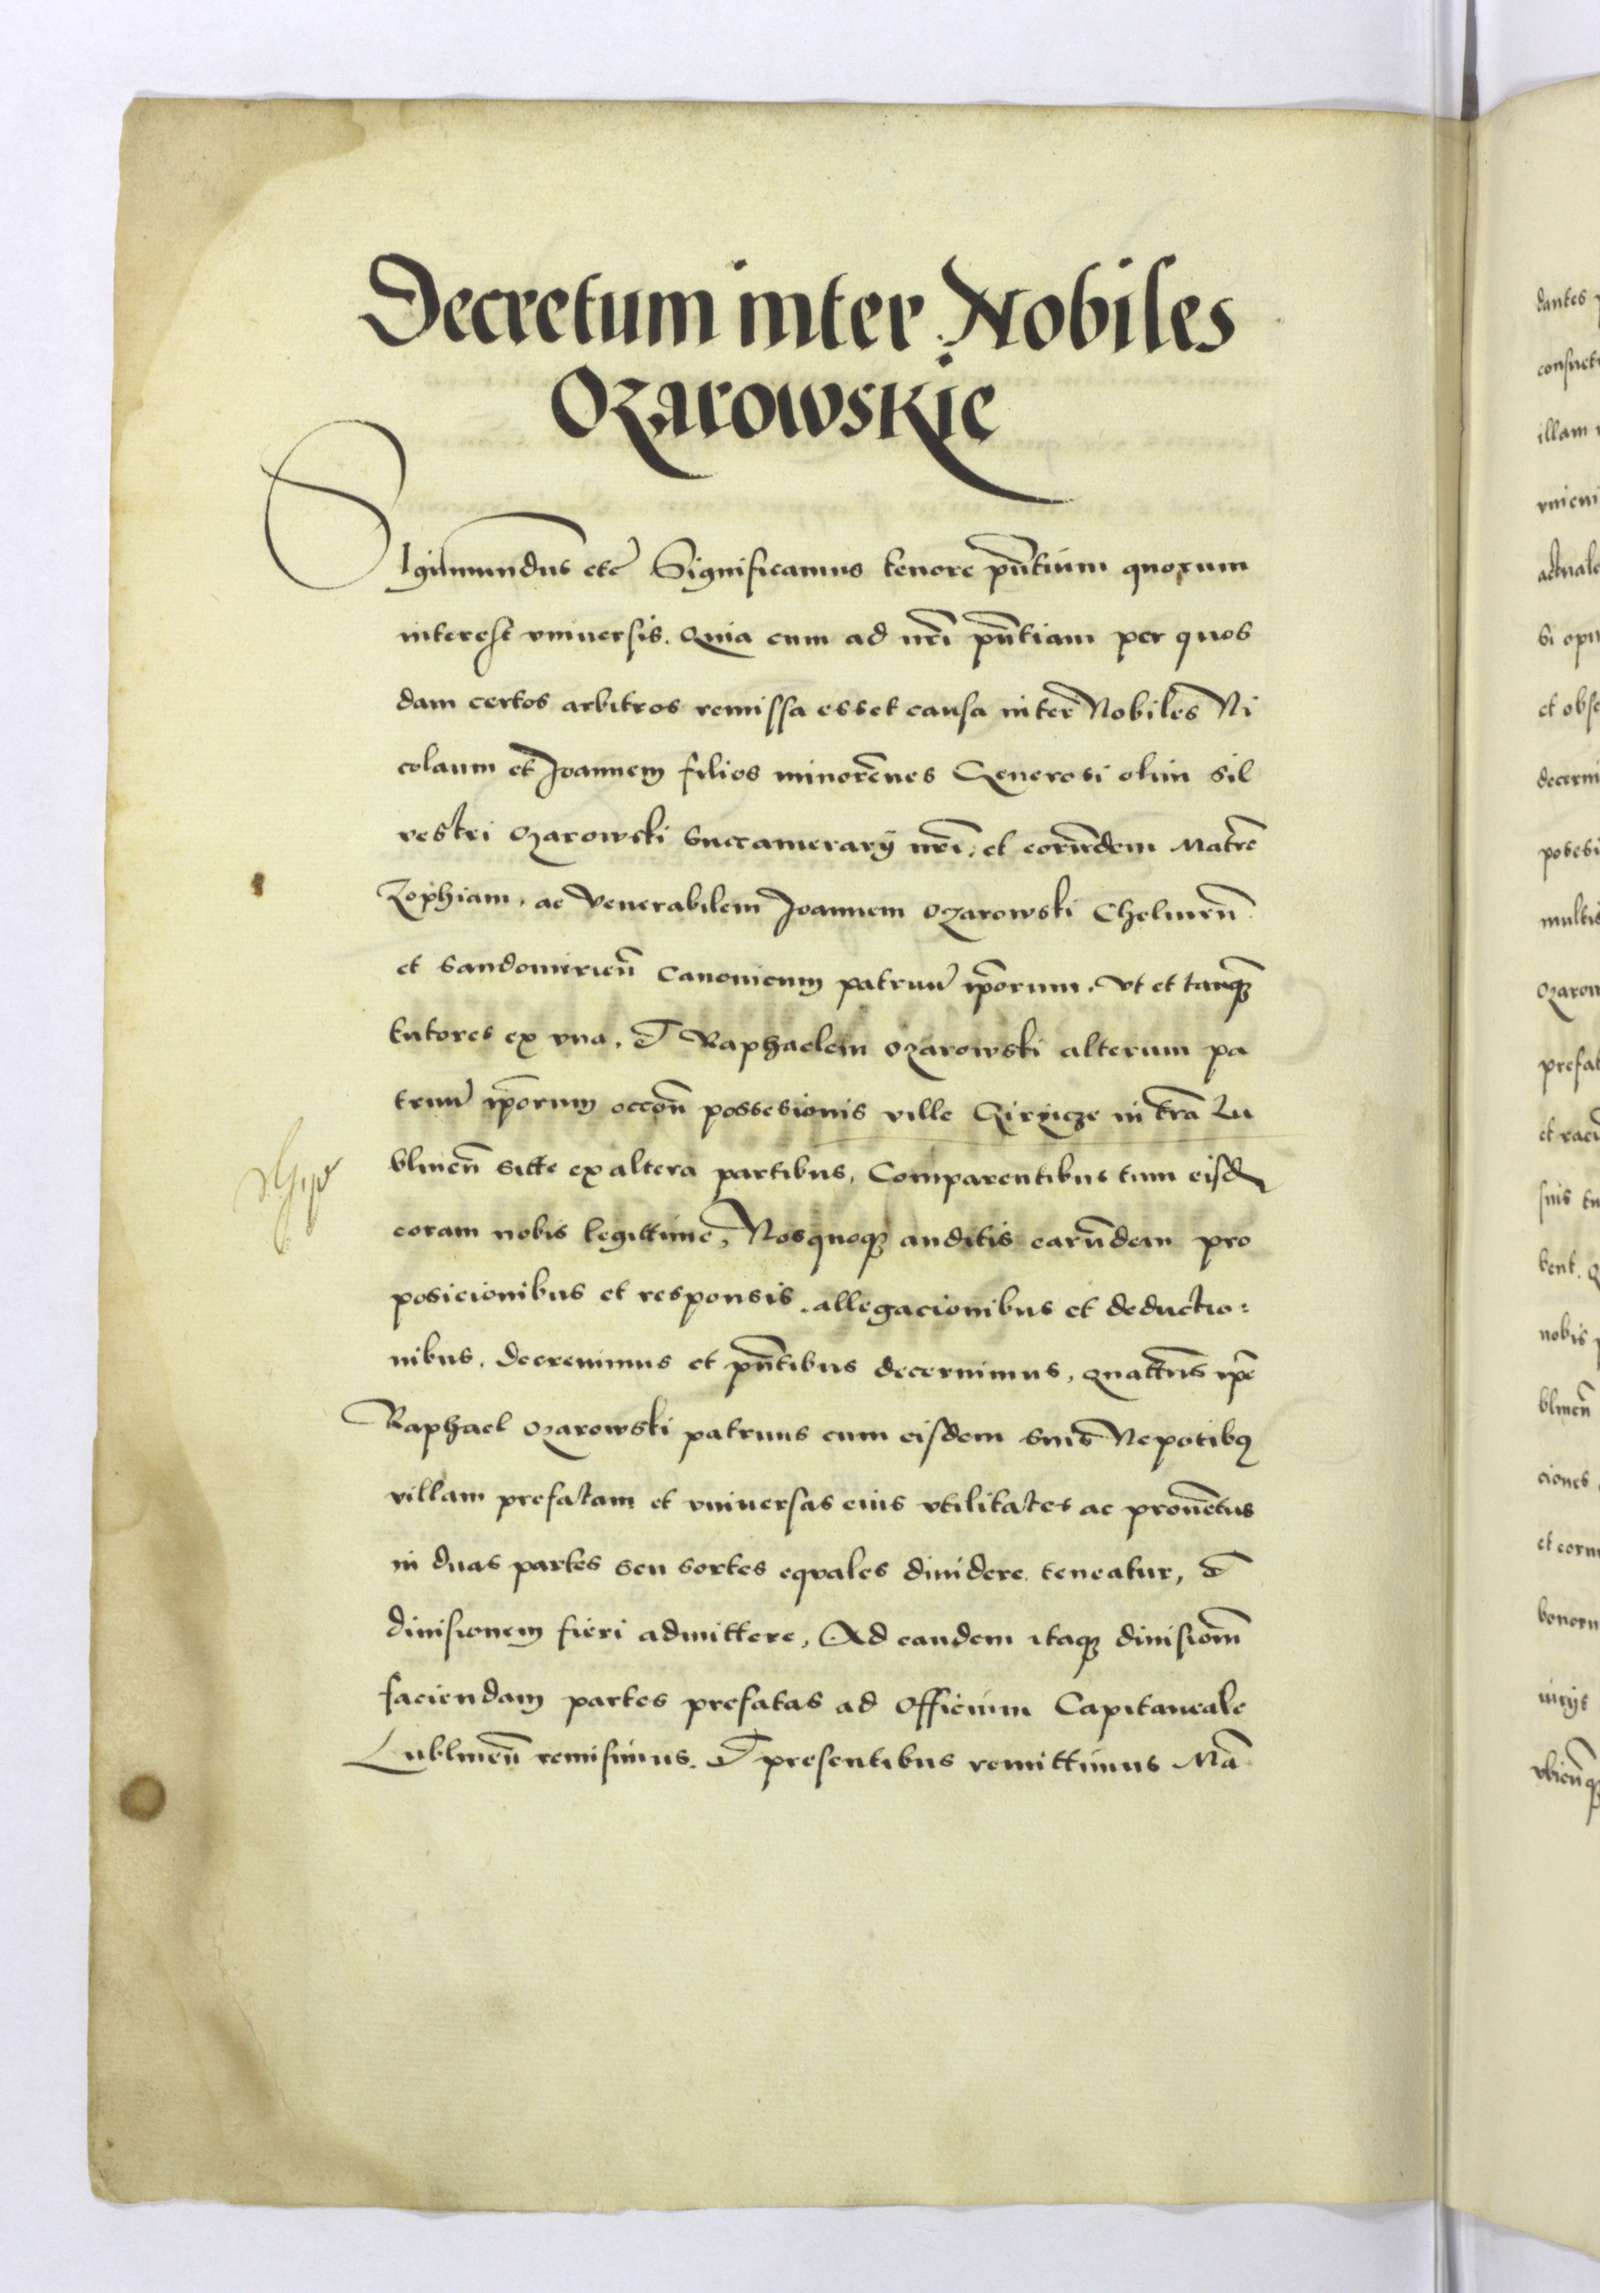 Decretum inter Nobiles
Ozarowskie
Sigismundus etc̃ Significamus tenore pñtium quorum
interest vniuersis. Quia cum ad nrĩ pñtiam per quos
dam certos arbitros remissa esset causa inter Nobiles Ni
colaum et Joannem filios minorẽnes Generosi olim Sil
vestri Ozarowski Succamerarÿ nrĩ, et eorũdem Matrẽ
Zophiam, ac Venerabilem Joannem Ozarowski Chelmeñ
et Sandomirieñ Canonicum patruũ ip̃orum, Vt et tanq̃
tutores ex vna, Et Raphaelem Ozarowski alterum pa
truũ ip̃orum occoñ possesionis ville in trã Lu
blineñ sitte ex altera partibus, Comparentibus tum eisd
coram nobis legittime, Nosquoq auditis earũdem pro
posicionibus et responsis, allegacionibus et deductio:
nibus. Decreuimus et pñtibus decernimus, quattũs ip̃e
Raphael Ozarowski patruus cum eisdem suis Nepotibq
villam prefatam et vniuersas eius vtilitates ac prouẽtus
in duas partes seu sortes eqvales diuidere teneatur, Et
diuisionem fieri admittere, Ad eandem itaq diuisiom̃
faciendam partes prefatas ad Officium Capitaneale
Lublineñ remisimus. Et presentibus remittimus Mã
dantes
illam
et obse
decerni
multis
Ozarow
prefat
suis tu
bent.
nobis
blineñ
ciones
vbicũq